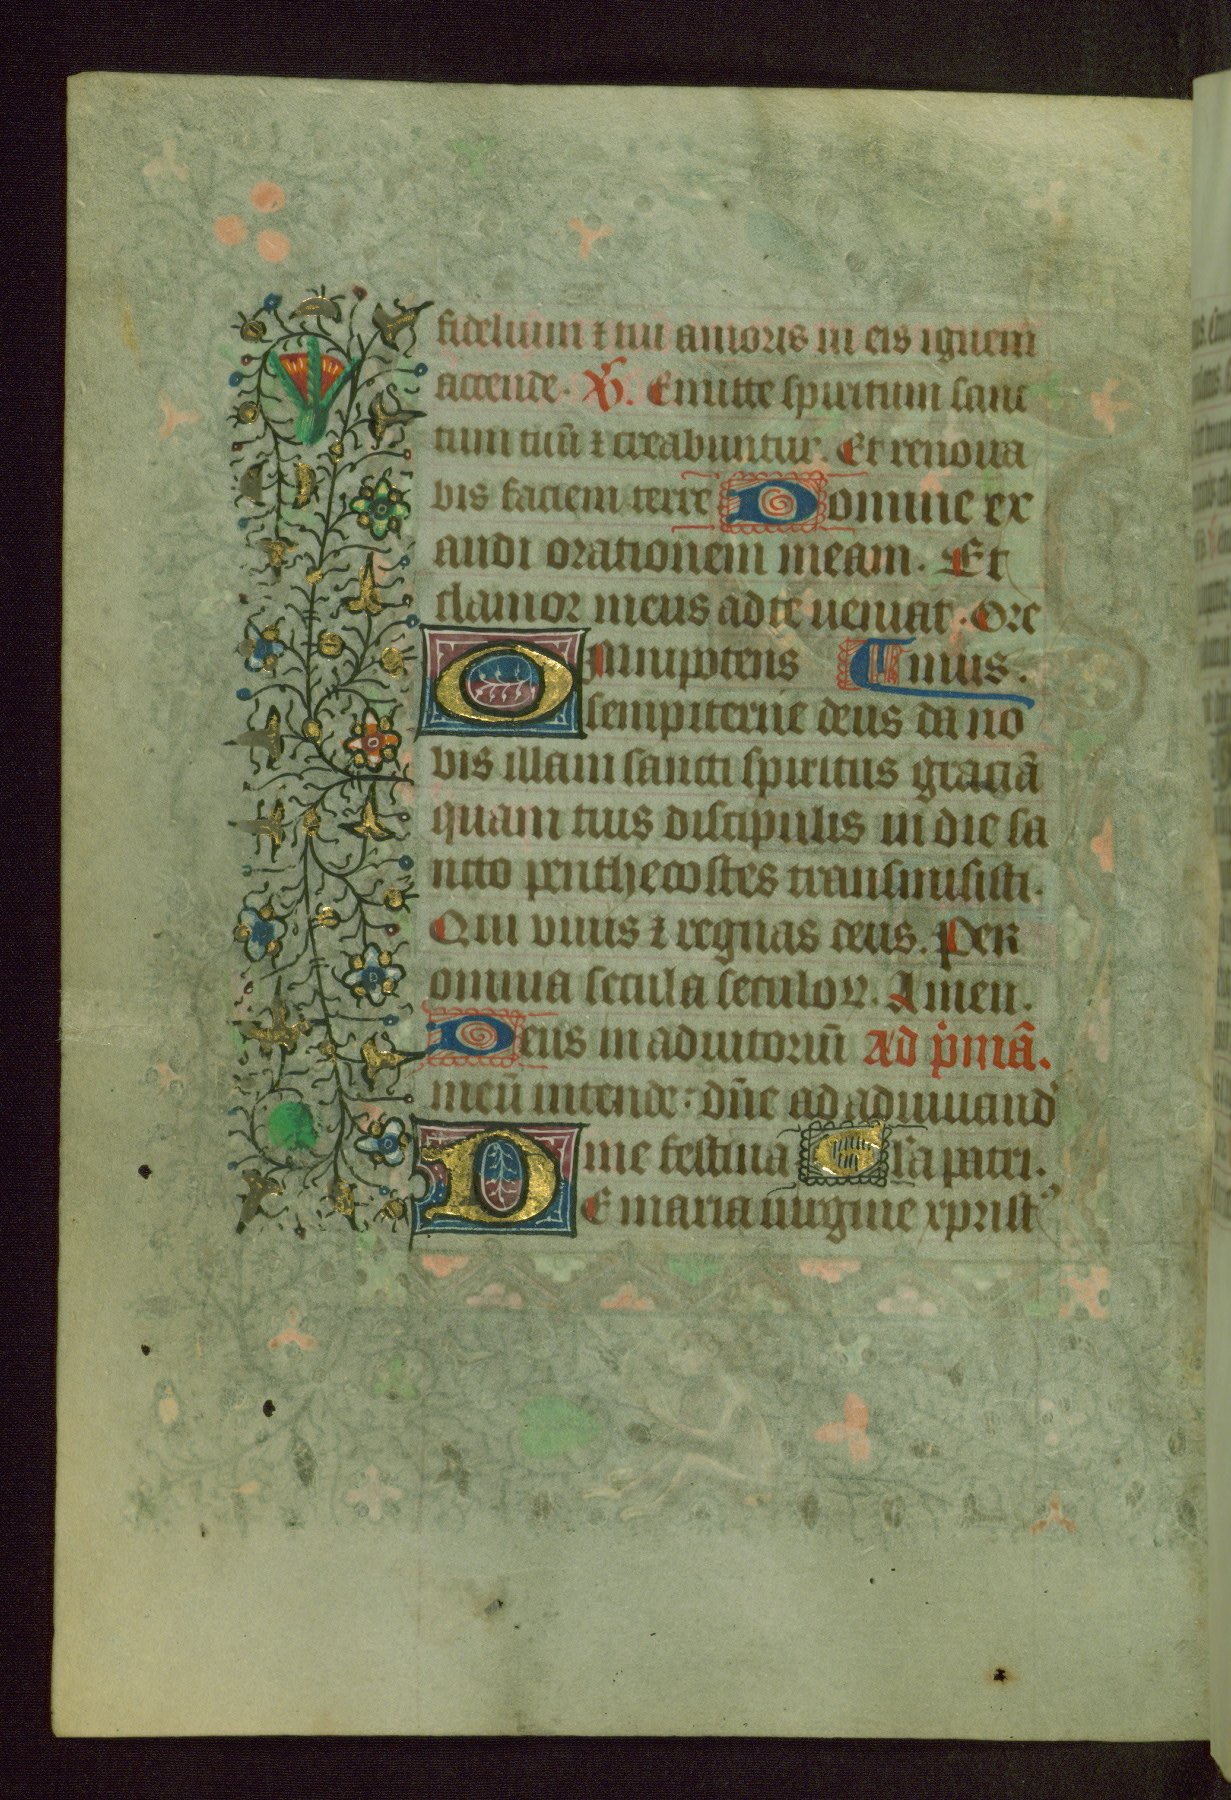 fidelium ⁊ tui amoris in eis ignem
accende. V̓. Emitte spiritum sanc
tum tuū ⁊ creabuntur. Et renoua
bis faciem terre Domine ex
audi orationem meam. Et
clamor meus ad te ueniat. Ore
Omnipotens mus.
sempiterne deus da no
bis illam sancti spiritus graciā
quam tuis discipulis in die sa
ncto penthecostes transmisisti.
Qui viuis ⁊ regnas deus. Per
omnia secula seculoꝝ. Amen.
Deus in adiutoriū Ad p̓mā.
meū intende: dn̄e ad adiuuand'
me festina Gl'a patri.
DE maria uirgine xprist